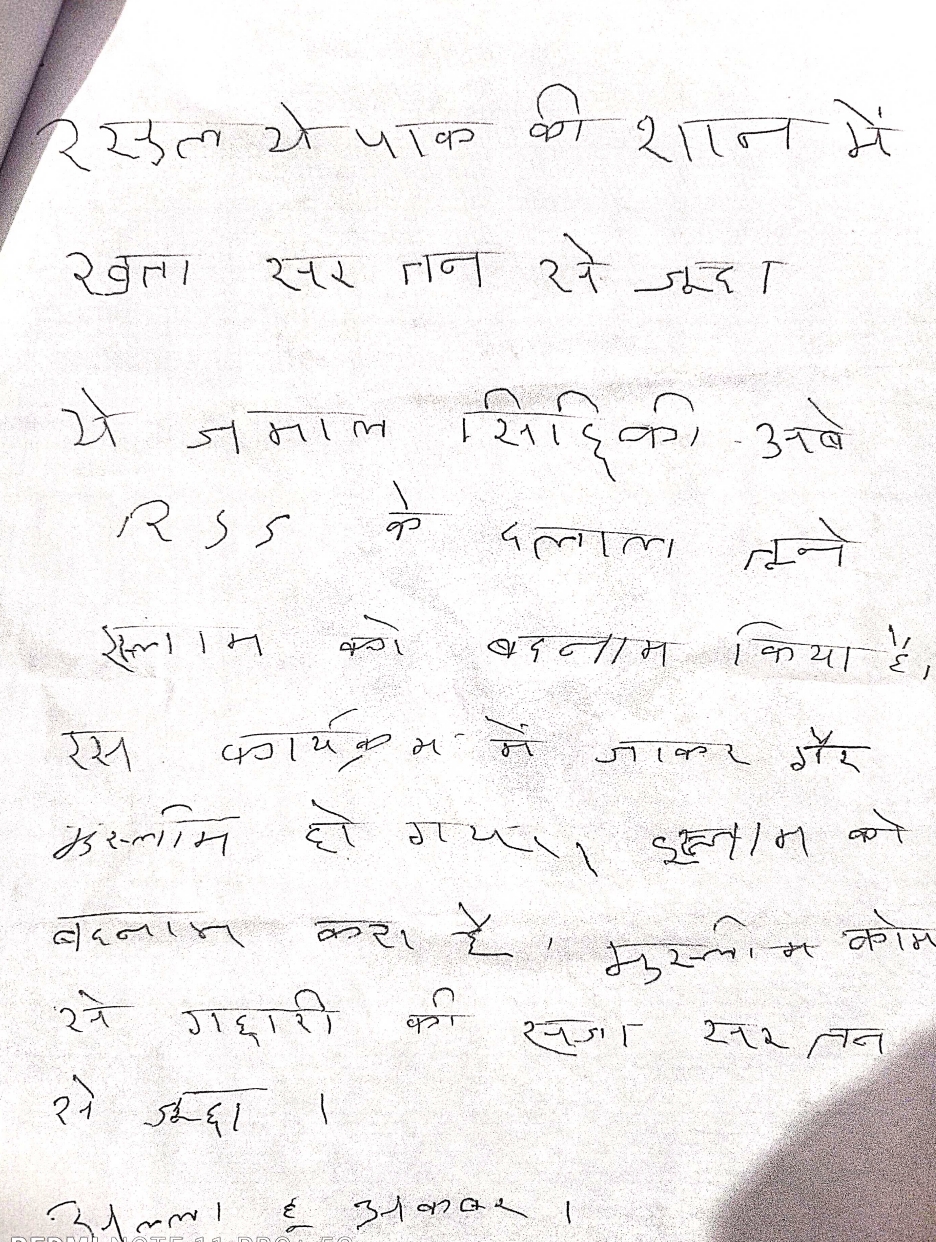 रसुल ये पाक की शान में
खता सर तन से जूदा
ये जमाल सिद्दिकी अबे
RSS के दलाल तूने
इस्लाम को बदनाम किया है,
रस कार्यक्रम में जाकर गैर
मुस्लीम हो गया, इस्लाम को
बदनाम करा है, मुस्लीम कोम
से गद्दारी की सजा सर तन
से जूद्दा ।
अल्ला हू अकबर ।
REDMI NOTE 11 PRO+ 5G